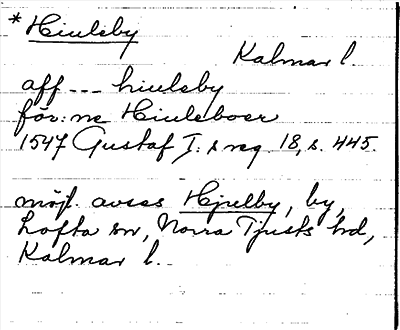 * Hiulsby
Kalmar l.
aff --- hiulsby
för: ne Hiulsboer
1547 Gustaf I:s reg. 18, s. 445.
möjl. avses Hjulby, by,
Lofta sn, Norra Tjusts hd,
Kalmar l.